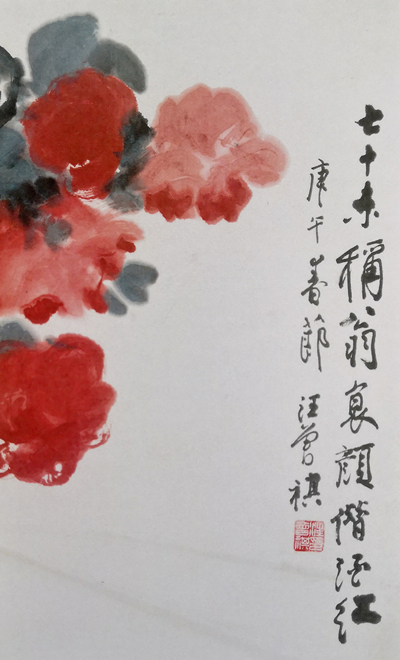 七十未稱翁衰顏借酒紅
庚午春節 汪曾祺